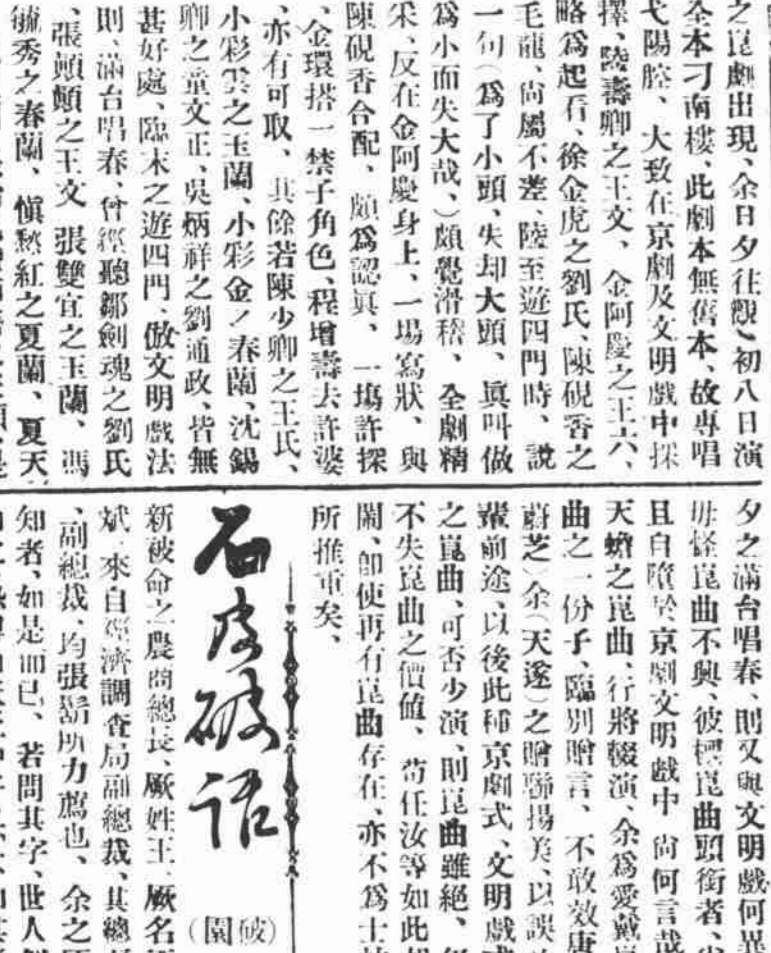 之崑劇出現、余日夕往觀、初八日演
全本刁南樓、此劇本無舊本、故專唱
弋陽腔、大致在京劇及文明戲中採
擇、陸壽卿之王文、金阿慶之王六、
略爲起看、徐金虎之劉氏、陳硯香之
毛龍、尙屬不差、陸至遊四門時、說
一句(爲了小頭、失却大頭、眞叫做
爲小而失大哉、)頗覺滑稽、全劇精
采、反在金阿慶身上、一場寫狀、與
陳硯香合配、頗爲認眞、一塲許探
、金環搭一禁子角色、程增壽去許婆
、亦有可取、其餘若陳少卿之王氏、
小彩雲之玉蘭、小彩金之春蘭、沈錫
卿之童文正、吳炳祥之劉通政、皆無
甚好處、臨末之遊四門、倣文明戲法
則、滿台唱春、曾經聽鄒劍魂之劉氏
、張頗頗之王文 張雙宜之玉蘭、馮
毓秀之春蘭、愼愁紅之夏蘭、夏天
夕之滿台唱春、則又與文明戲何異
毋怪崑曲不興、彼標崑曲頭銜者、
且自隳於京劇文明戲中 尙何言哉
天蟾之崑曲、行將輟演、余爲愛戴
曲之一份子、臨別贈言、不敢效唐
蔚芝)余(天遂)之贈聯揚美、以誤
輩前途、以後此種京劇式、文明戲
之崑曲、可否少演、則崑曲雖絕、
不失崑曲之價値、苟任汝等如此
鬧、卽使再有崑曲存在、亦不爲士
所推重矣、
石皮破話
(園破)
新被命之農商總長、厥姓王 厥名
斌 來自經濟調查局副總裁、其總
、副總裁、均張 所力薦也、余之
知者、如是而已、若問其字、世人